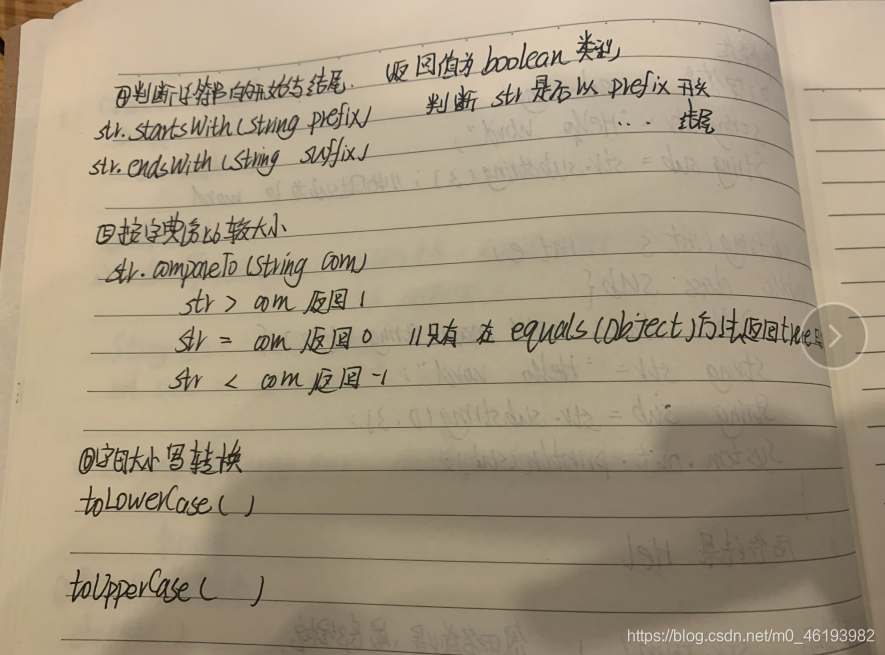 ④判断字符串的开始与结尾. 返回值为boolean类型,
str.startsWith(String prefix) 判断 str 是否以 prefix 开头
str.endsWith(String suffix) ... 结尾
⑤按字典序比较大小
str.compareTo(String com)
str > com 返回 1
str = com 返回 0 //只有 在 equals(Object)方法返回true
str < com 返回 -1
⑥字母大小写转换
toLowerCase( )
toUpperCase( )
https://blog.csdn.net/m0_46193982